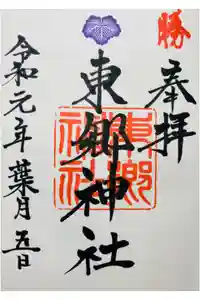 勝
奉拝
東郷神社
東郷神社
令和元年葉月五日